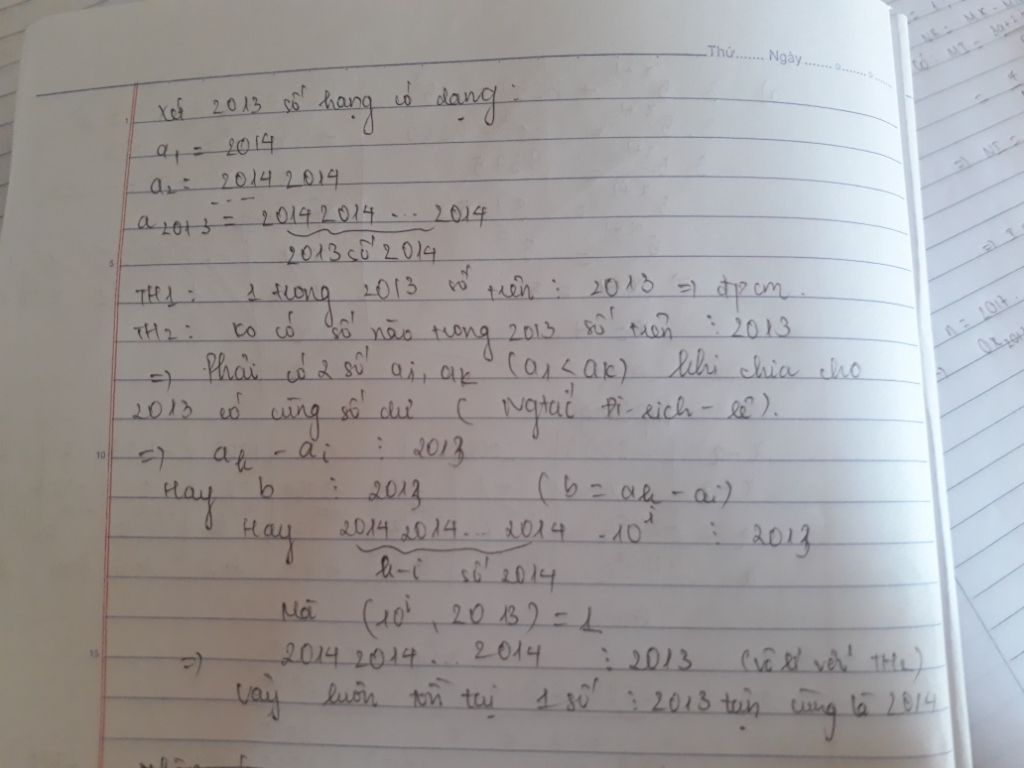 Thứ....... Ngày.......
Xét 2013 số hạng có dạng:
a₁ = 2014
a₂ = 2014 2014
...
a₂₀₁₃ = 2014 2014 ... 2014
2013 số 2014
TH1: 1 trong 2013 số trên ⋮ 2013 => đpcm.
TH2: ko có số nào trong 2013 số trên ⋮ 2013
=> Phải có 2 số ai, ak (a1 < ak) khi chia cho
2013 có cùng số dư (Ngtắc Đi-rich-lê).
=> ak - ai ⋮ 2013
Hay b ⋮ 2013 (b = ak - ai)
Hay 2014 2014... 2014 . 10ⁱ ⋮ 2013
k-i số 2014
Mà (10ⁱ, 2013) = 1
=> 2014 2014... 2014 ⋮ 2013 (vô lí với TH2)
Vậy luôn tồn tại 1 số ⋮ 2013 tận cùng là 2014